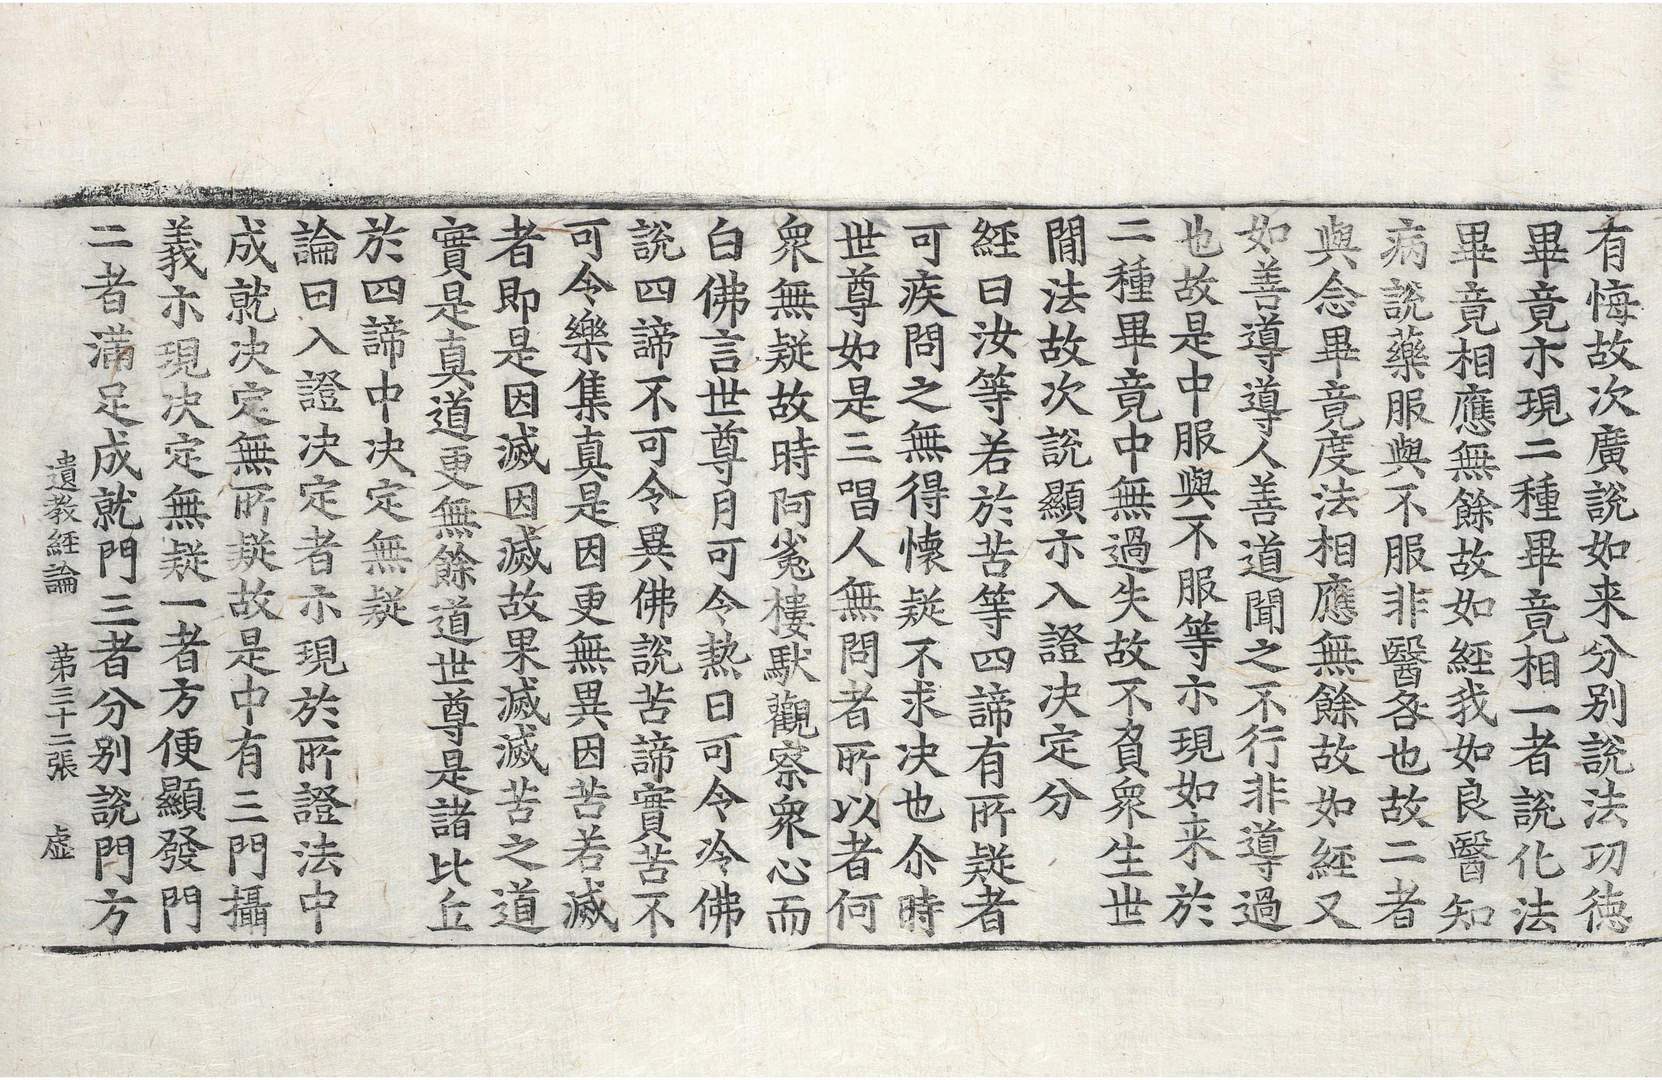 有悔故次廣說如来分别說法功徳
畢竟示現二種畢竟相一者說化法
畢竟相應無餘故如經我如良醫知
病說藥服與不服非醫咎也故二者
與念畢竟度法相應無餘故如經又
如善導導人善道聞之不行非導過
也故是中服與不服等示現如来於
二種畢竟中無過失故不負衆生世
間法故次說顯示入證决定分
經曰汝等若於苦等四諦有所疑者
可疾問之無得懐疑不求决也尒時
世尊如是三唱人無問者所以者何
衆無疑故時阿㝹樓馱觀察衆心而
白佛言世尊月可令熱日可令冷佛
說四諦不可令異佛說苦諦實苦不
可令樂集真是因更無異因苦若滅
者即是因滅因滅故果滅滅苦之道
實是真道更無餘道世尊是諸比丘
於四諦中决定無疑
論曰入證决定者示現於所證法中
成就决定無所疑故是中有三門攝
義示現决定無疑一者方便顯發門
二者滿足成就門三者分别說門方
遺教經論 第三十二張 虛